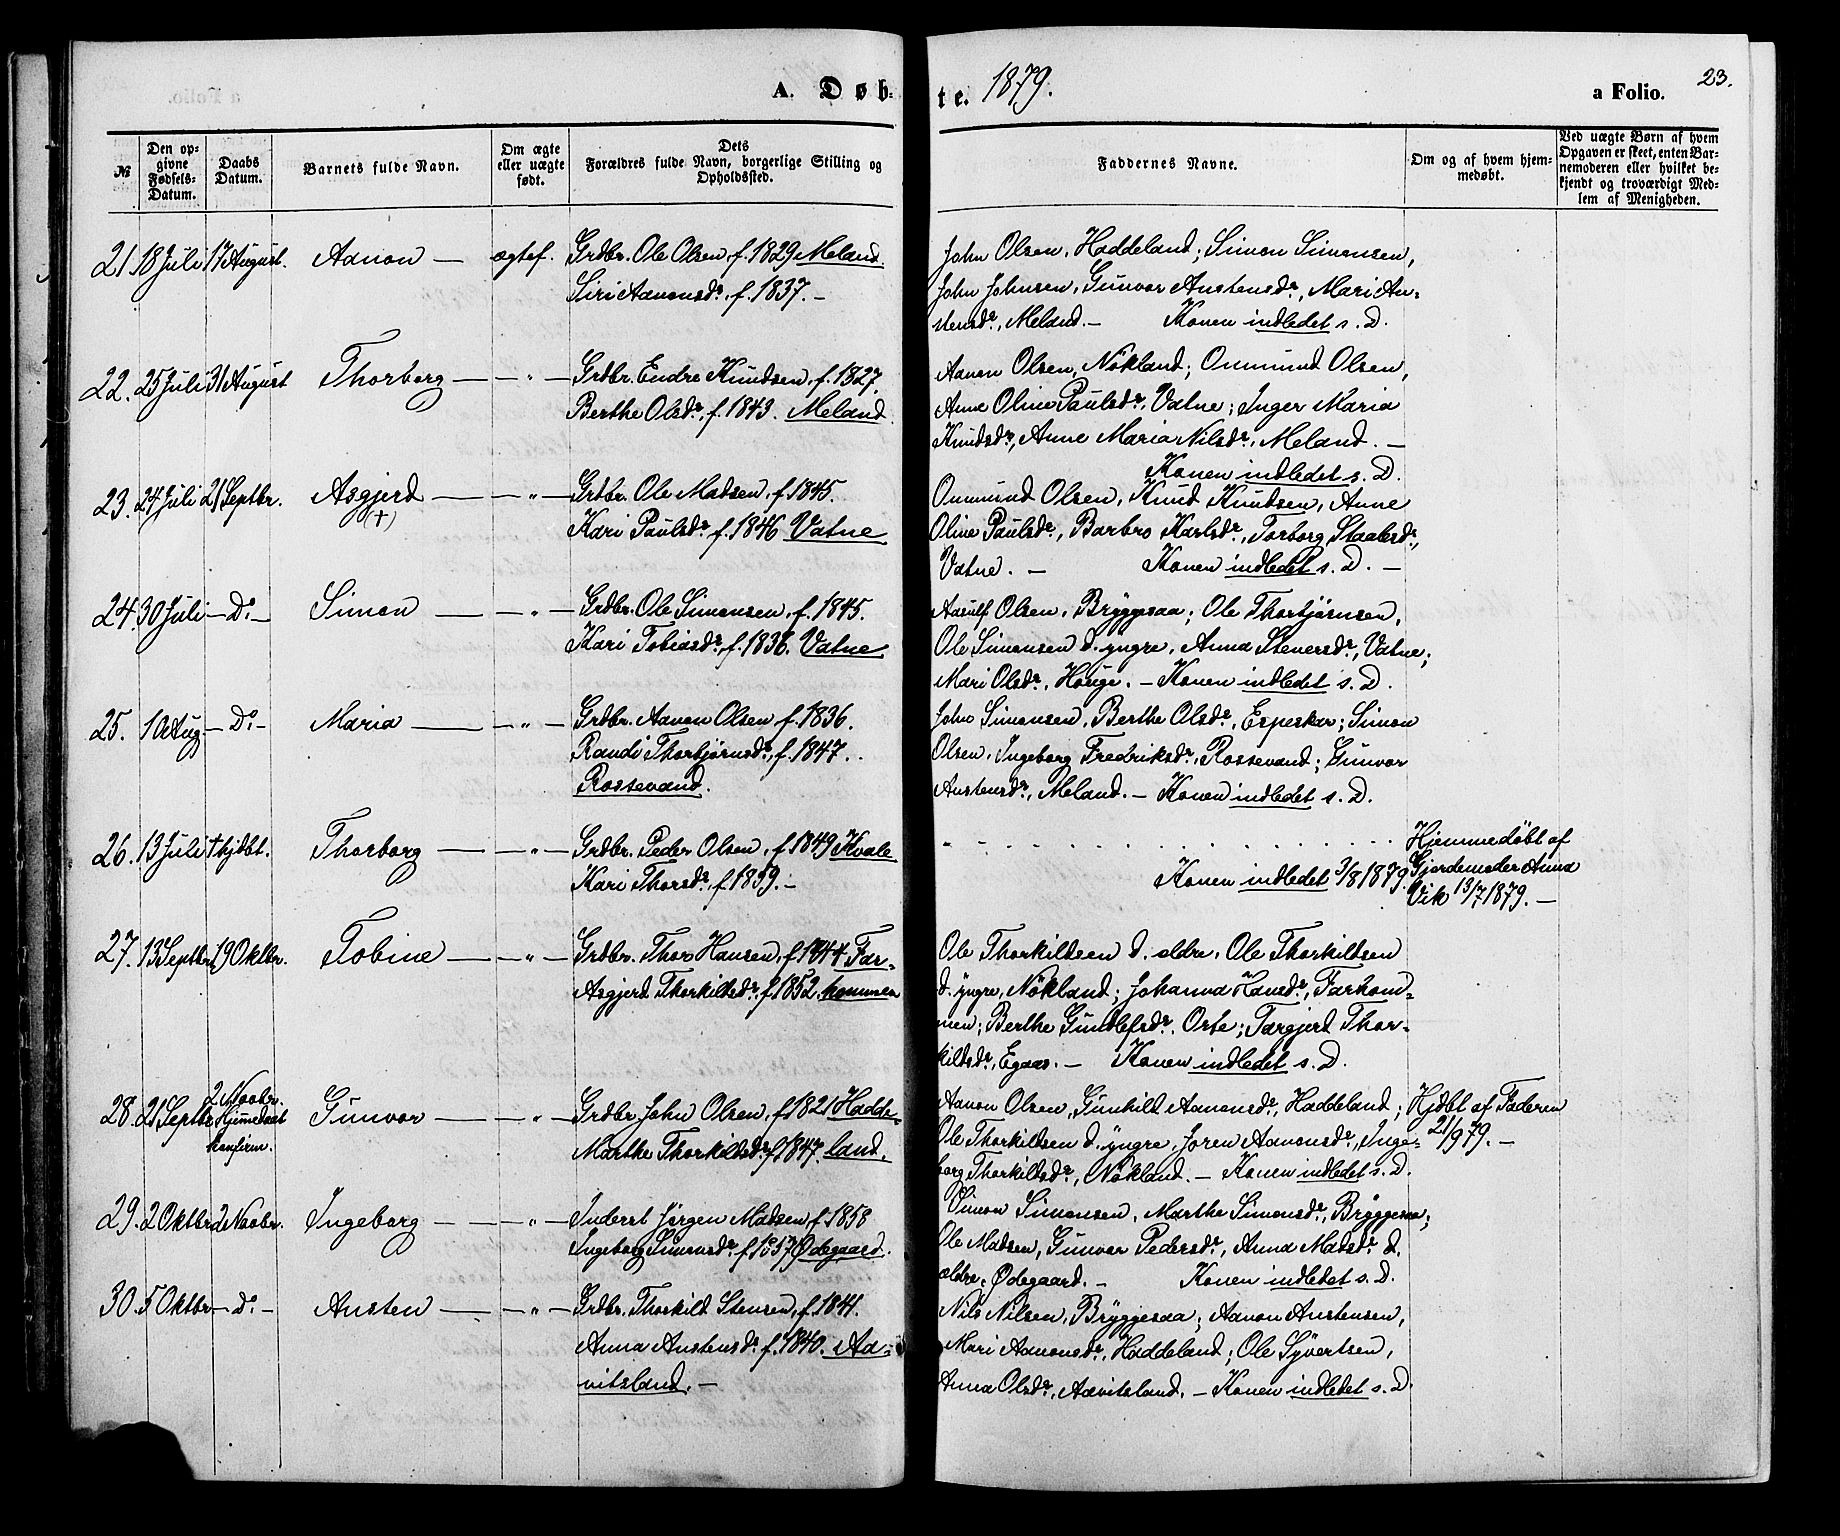 A. Døb-
te. 1879.
a Folio.
23.
№
Den op-
givne
Fødsels-
Datum.
Daabs
Datum.
Barnets fulde Navn.
Om ægte
eller uægte
født.
Dets
Forældres fulde Navn, borgerlige Stilling og
Opholdssted.
Faddernes Navne.
Om og af hvem hjem-
medøbt.
Ved uægte Børn af hvem
Opgaven er skeet, enten Bar-
nemoderen eller hvilket be-
kjendt og troværdigt Med-
lem af Menigheden.
21. 18 Juli 17 August. Aanon — ægtef. Grdbr. Ole Olsen, f. 1829 Meland.
Siri Aanonsdr. f. 1837. –
John Olsen, Haddeland; Simon Simonsen,
John Johnsen, Gunvor Austensdr., Mari Au-
stensdr., Meland. – Konen indledet s. D.
22. 25 Juli 31 August Thorborg — " — Grdbr. Endre Knudsen, f. 1827.
Berthe Olsdr. f. 1843. Meland.
Aanon Olsen, Nökland; Onmund Olsen,
Anne Oline Paulsdr., Vatne; Inger Maria
Knudsdr., Anne Maria Nilsdr., Meland. –
Konen indledet s. D.
23. 24 Juli 21 Septbr. Asgjerd — " — Grdbr. Ole Madsen, f. 1845.
(†)
Kari Paulsdr. f. 1846 Vatne
Onmund Olsen, Knud Knudsen, Anne
Oline Paulsdr., Barbro Karlsdr., Torborg Staalesdr.,
Vatne. – Konen indledet s. D. –
24. 30 Juli – Do – Simon — " — Grdbr. Ole Simonsen, f. 1845.
Kari Tobiasdr., f. 1836. Vatne.
Aasulf Olsen, Bryggesaa; Ole Thorbjørnsen,
Ole Simonsen d. yngre, Anna Stenersdr., Vatne;
Mari Olsdr., Houge. – Konen indledet s. D.
25. 10 Aug. – Do – Maria — " — Grdbr. Aanon Olsen f. 1836.
Randi Thorbjørnsdr., f. 1847.
Rossevand.
John Simonsen, Berthe Olsdr., Espeskar; Simon
Olsen, Ingeborg Fredriksdr., Rossevand; Gunvor
Austensdr., Meland. – Konen indledet s. D.
26. 13 Juli † hjdbt. Thorborg — " — Grdbr. Peder Olsen, f. 1849 Kvale
Kari Thorsdr., f. 1839. –
Konen indledet 3/8 1879.
Hjemmedöbt af
Gjordemoder Anna
Vik 13/7 1879. –
27. 13 Septbr. 19 Oktbr. Tobine — " — Grdbr. Thor Hansen, f. 1844 Far-
Asgjerd Thorkildsdr. f. 1852. kommen
Ole Thorkildsen d. ældre, Ole Thorkildsen
d. yngre, Nökland; Johanna Hansdr., Farkom-
men; Berthe Gundlefsdr. Orte; Targjerd Thor-
kildsdr., Egaas. – Konen indledet s. D.
28. 21 Septbr. 2 Novbr.
Hjemmedøbt
konfirm.
Gunvor — " — Grdbr. John Olsen, f. 1821 Hadde-
Marthe Thorkildsdr. f. 1847. land.
Aanon Olsen, Gunhild Aanonsdr., Haddeland;
Ole Thorkildsen d. yngre, Joren Aanonsdr., Inge-
borg Thorkildsdr., Nökland. – Konen indledet s. D.
Hjdbt af Faderen
21/9 79. –
29. 2 Oktbr. 2 Novbr. Ingeborg — " — Inderst Jørgen Madsen, f. 1858
Ingeborg Simonsdr. f. 1857 Ødegaard.
Simon Simonsen, Marthe Simonsdr., Bryggesaa;
Ole Madsen, Gunvor Pedersdr., Anna Madsdr. d.
ældre, Ødegaard. – Konen indledet s. D.
30. 5 Oktbr. – Do – Austen — " — Grdbr. Thorkild Stensen, f. 1841.
Anna Austensdr. f. 1840. Aa-
vitsland. –
Nils Nilsen, Bryggesaa; Aanon Austensen,
Mari Aanonsdr., Haddeland; Ole Syvertsen,
Anna Olsdr., Aavitsland. – Konen indledet s. D.